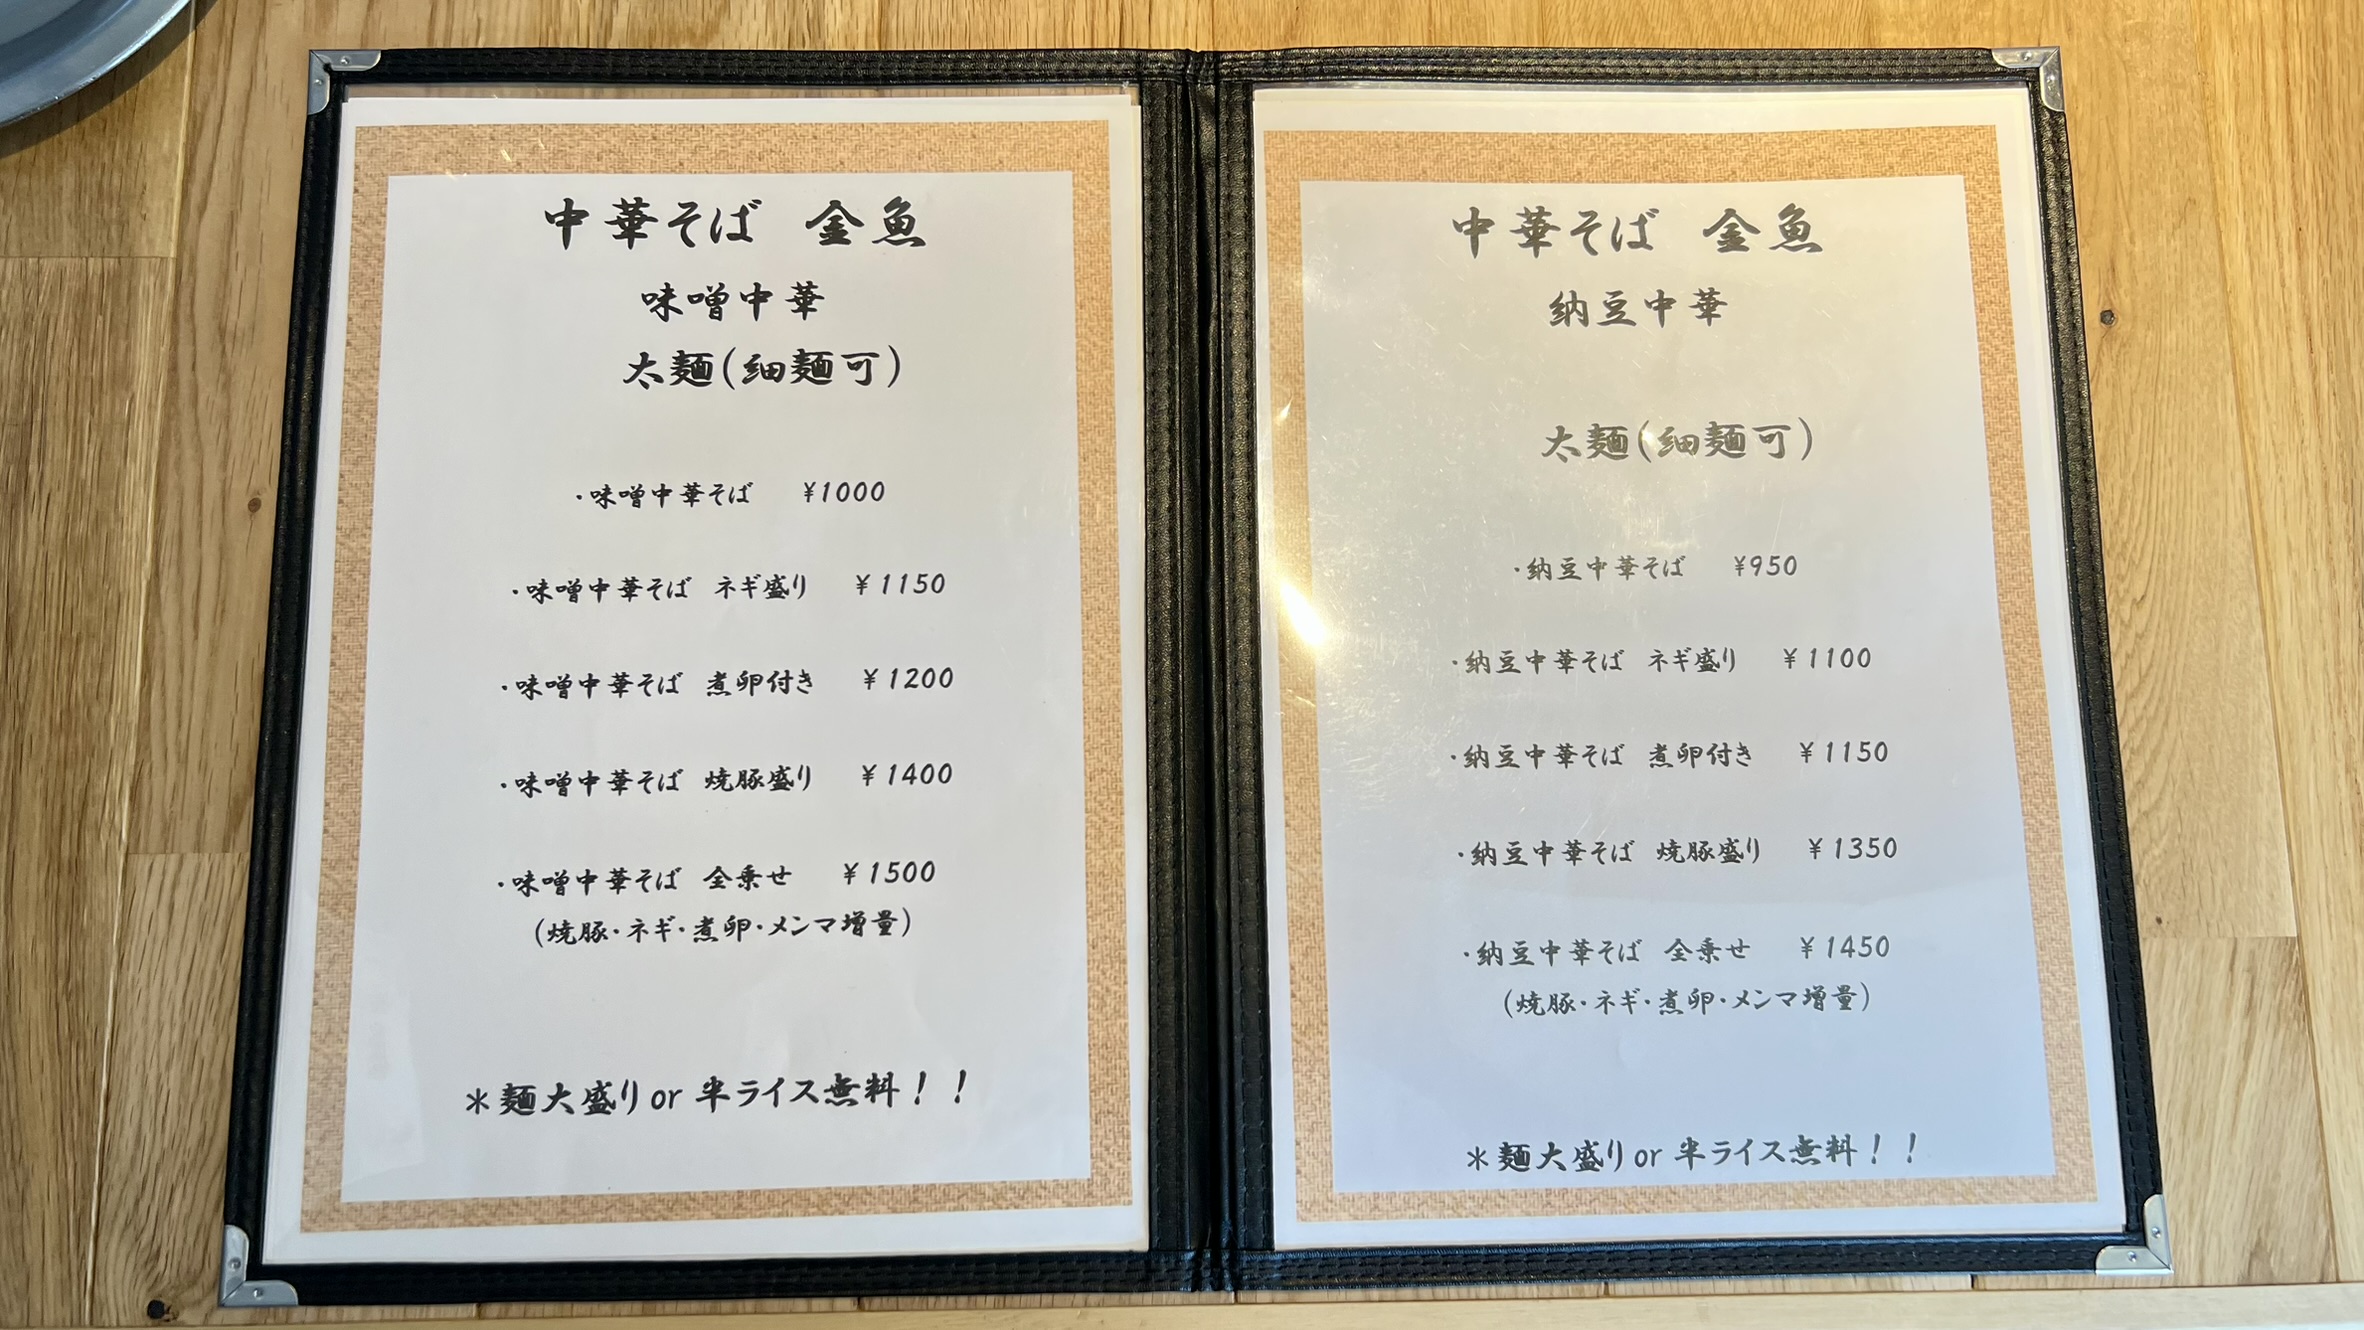 中華そば 金魚
味噌中華
太麺(細麺可)
・味噌中華そば ¥1000
・味噌中華そば ネギ盛り ¥1150
・味噌中華そば 煮卵付き ¥1200
・味噌中華そば 焼豚盛り ¥1400
・味噌中華そば 全乗せ ¥1500
(焼豚・ネギ・煮卵・メンマ増量)
＊麺大盛りor 半ライス無料！！
中華そば 金魚
納豆中華
太麺(細麺可)
・納豆中華そば ¥950
・納豆中華そば ネギ盛り ¥1100
・納豆中華そば 煮卵付き ¥1150
・納豆中華そば 焼豚盛り ¥1350
・納豆中華そば 全乗せ ¥1450
(焼豚・ネギ・煮卵・メンマ増量)
＊麺大盛りor 半ライス無料！！